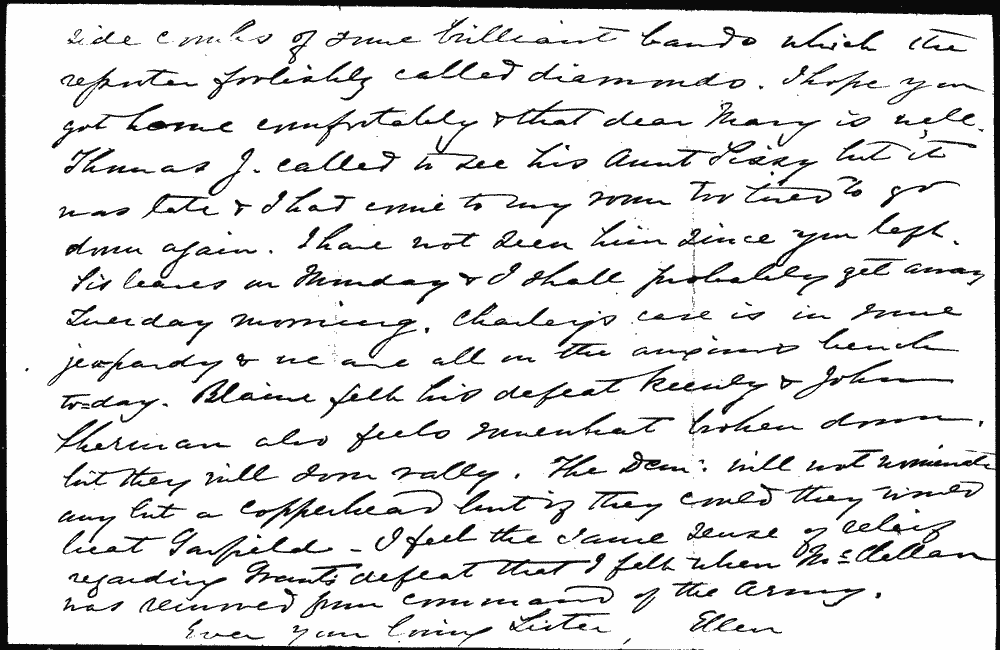 side combs of some brilliant bands which the
reporter foolishly called diamonds. I hope you
got home comfortably & that dear Mary is well.
Thomas J. called to see his Aunt Sissy but it
was late & I had come to my room too tired to go
down again. I have not seen him since you left.
Sis leaves on Monday & I shall probably get away
Tuesday morning. Charley's case is in some
jeopardy & we are all on the anxious bench
to=day. Blaine felt his defeat keenly & John
Sherman also feels somewhat broken down.
but they will soon rally. The Dem: will not nominate
any but a Copperhead but if they could they would
beat Garfield - I feel the same sense of relief
regarding Grants defeat that I felt when McClellan
was removed from command of the Army.
Ever your loving Sister, Ellen